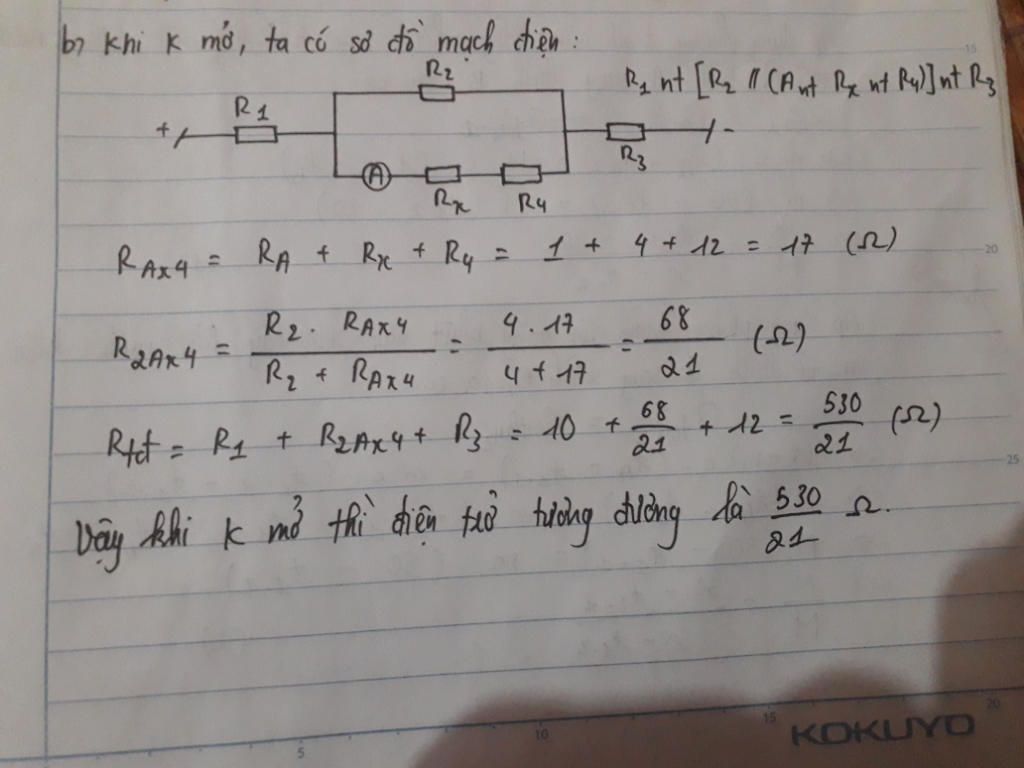 b) Khi K mở, ta có sơ đồ mạch điện:
R1 nt [R2 // (A nt Rx nt R4)] nt R3
R2
R1
+
-
A
Rx
R4
R3
R_Ax4 = R_A + R_x + R_4 = 1 + 4 + 12 = 17 (Ω)
R_2Ax4 = (R_2 . R_Ax4)/(R_2 + R_Ax4) = (4 . 17)/(4 + 17) = 68/21 (Ω)
R_tđ = R_1 + R_2Ax4 + R_3 = 10 + 68/21 + 12 = 530/21 (Ω)
Vậy khi K mở thì điện trở tương đương là 530/21 Ω.
15
20
25
5
10
15
20
KOKUYO